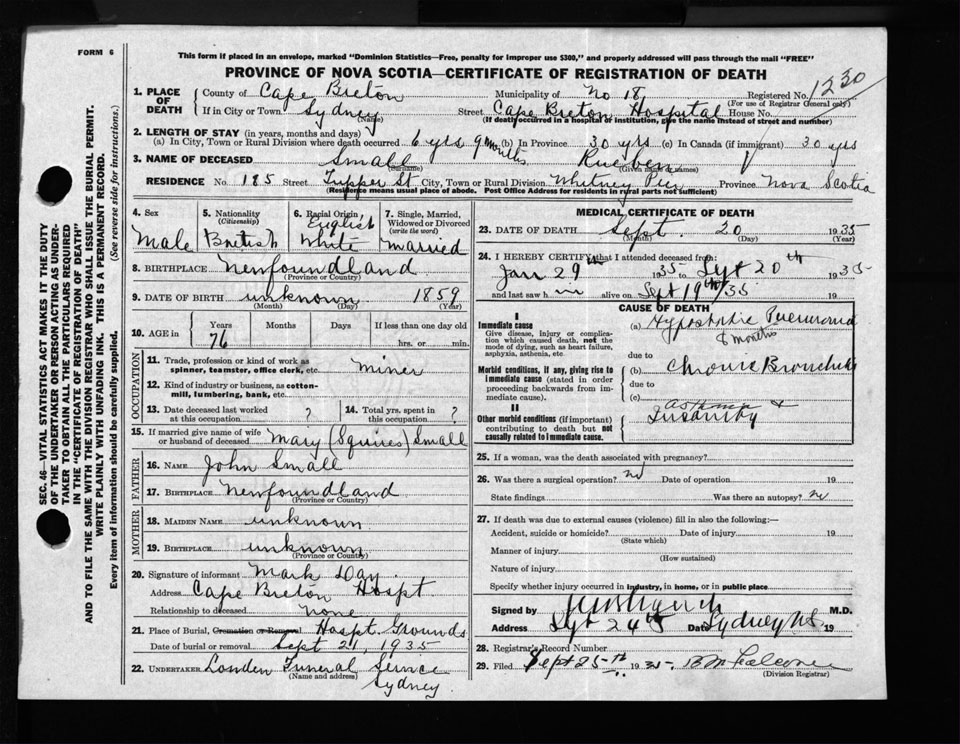 FORM 6
This form if placed in an envelope, marked "Dominion Statistics—Free, penalty for improper use $300," and properly addressed will pass through the mail "FREE"
PROVINCE OF NOVA SCOTIA—CERTIFICATE OF REGISTRATION OF DEATH
1230
1. PLACE OF DEATH
County of Cape Breton Municipality of No 18 Registered No.
(For use of Registrar General only)
If in City or Town Sydney Street Cape Breton Hospital House No.
(Name) (If death occurred in a hospital or institution, give the name instead of street and number)
2. LENGTH OF STAY (in years, months and days)
(a) In City, Town or Rural Division where death occurred 6 yrs 9 months (b) In Province 30 yrs (c) In Canada (if immigrant) 30 yrs
3. NAME OF DECEASED Small Rueben
(Surname) (Given name or names)
RESIDENCE No. 185 Street Tupper St City, Town or Rural Division Whitney Pier Province Nova Scotia
(Residence means usual place of abode. Post Office Address for residents in rural parts not sufficient)
4. Sex Male
5. Nationality (Citizenship) British
6. Racial Origin English White
7. Single, Married, Widowed or Divorced (write the word) Married
8. BIRTHPLACE Newfoundland
(Province or Country)
9. DATE OF BIRTH unknown 1859
(Month) (Day) (Year)
10. AGE in Years Months Days If less than one day
76 hrs. or min.
OCCUPATION
11. Trade, profession or kind of work as spinner, teamster, office clerk, etc. miner
12. Kind of industry or business, as cotton-mill, lumbering, bank, etc.
13. Date deceased last worked at this occupation ?
14. Total yrs. spent in this occupation ?
15. If married give name of wife or husband of deceased Mary (Squires) Small
FATHER
16. NAME John Small
17. BIRTHPLACE Newfoundland
(Province or Country)
MOTHER
18. MAIDEN NAME unknown
19. BIRTHPLACE unknown
(Province or Country)
20. Signature of informant Mark Day.
Address Cape Breton Hospt
Relationship to deceased None
21. Place of Burial, Cremation or Removal Hospt Grounds
Date of burial or removal Sept 21, 1935
22. UNDERTAKER Londen Funeral Service
(Name and address) Sydney.
MEDICAL CERTIFICATE OF DEATH
23. DATE OF DEATH Sept. 20 1935
(Month) (Day) (Year)
24. I HEREBY CERTIFY that I attended deceased from:
Jan 29th 1935 to Sept 20th 1935
and last saw h im alive on Sept 19th/35 19
CAUSE OF DEATH
I
Immediate cause
Give disease, injury or complication which caused death, not the mode of dying, such as heart failure, asphyxia, asthenia, etc
(a) Hypostatic Pneumonia
8 months
due to
Morbid conditions, if any, giving rise to immediate cause (stated in order proceeding backwards from immediate cause).
(b) Chronic Bronchitis
due to
(c)
II
Other morbid conditions (if important) contributing to death but not causally related to immediate cause.
asthma &
Insanity
25. If a woman, was the death associated with pregnancy?
26. Was there a surgical operation? no Date of operation 19
State findings Was there an autopsy? no
27. If death was due to external causes (violence) fill in also the following:—
Accident, suicide or homicide? Date of injury 19
(State which)
Manner of injury
(How sustained)
Nature of injury
Specify whether injury occurred in industry, in home, or in public place
Signed by M.D.
Address Sept 24th Date Sydney NS 19
28. Registrar's Record Number
29. Filed Sept 25th 1935
(Division Registrar)
SEC. 46—VITAL STATISTICS ACT MAKES IT THE DUTY
OF THE UNDERTAKER OR PERSON ACTING AS UNDER-
TAKER TO OBTAIN ALL THE PARTICULARS REQUIRED
IN THE "CERTIFICATE OF REGISTRATION OF DEATH"
AND TO FILE THE SAME WITH THE DIVISION REGISTRAR WHO SHALL ISSUE THE BURIAL PERMIT.
WRITE PLAINLY WITH UNFADING INK. THIS IS A PERMANENT RECORD.
Every item of information should be carefully supplied. (See reverse side for instructions.)